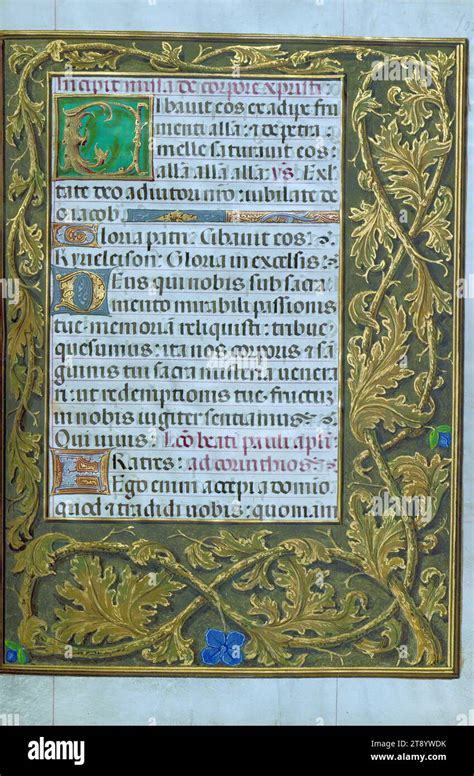 Incipit missa de corpore xpristi
Cibauit eos ex adipe fru
menti alla: ⁊ de petra
melle saturauit eos:
alla alla alla. ys. Exul
tate deo adiutori nr̃o: iubilate de
o iacob.
Gloria patri. Cibauit eos:
Kyrieleison: Gloria in excelsis
Deus qui nobis sub sacra
mento mirabili passionis
tue memoriã reliquisti: tribue
quesumus: ita nos corporis ⁊ sã
guinis tui sacra misteria venera
ri: ut redemptionis tue fructũ
in nobis iugiter sentiamus:
Qui uiuis: Lc̃o beati pauli apli:
Fratres: ad corinthios:
Ego enim accepi a domino
quod ⁊ tradidi uobis: quoniam
alamy
Image ID: 2T81YWDK
www.alamy.com